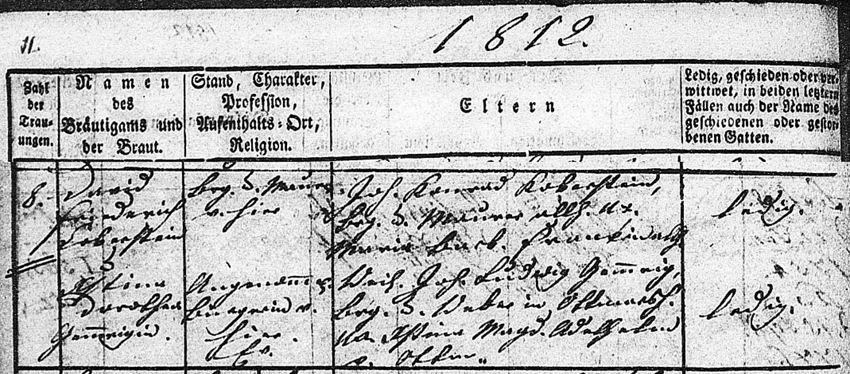 11.
1812.
Zahl
der
Trau-
ungen.
Namen
des
Bräutigams und
der Braut.
Stand, Charakter,
Profession,
Aufenthalts-Ort,
Religion.
Eltern
Ledig, geschieden oder ver-
wittwet, in beiden letztern
Fällen auch der Name des
geschiedenen oder gestor-
benen Gatten.
8.
David
Friederich
Koberstein
brg. & Maurer
v. hier
Joh. Konrad Koberstein,
brg. & Maurer allh. ux.
Maria Barb.
ledig.
Dorothea
v.
hier.
Ev.
Weil. Joh. Ludwig
brg. & Weber in
Magd.
ledig.